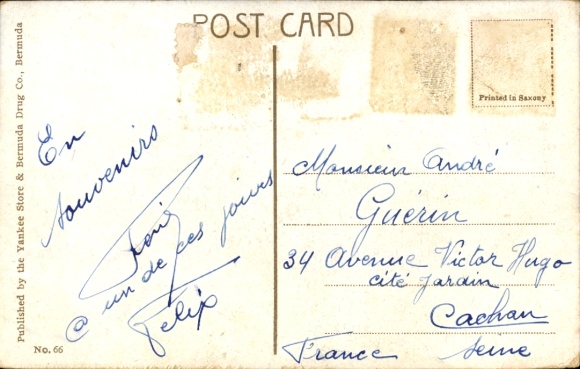 POST CARD
Printed in Saxony
Published by the Yankee Store & Bermuda Drug Co., Bermuda
No. 66
En
souvenirs
@ un de ces jours
Felix
Monsieur André
Guérin
34 Avenue Victor Hugo
cité jardin
Cachan
France Seine